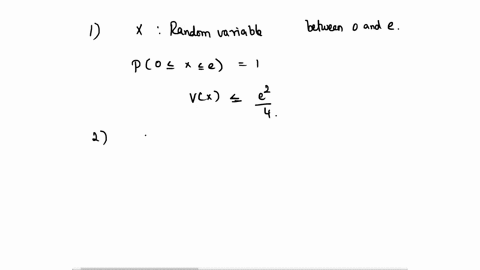 1) X : Random variable between 0 and e.
P(0 ≤ x ≤ e) = 1
V(x) ≤ e²/4.
2)